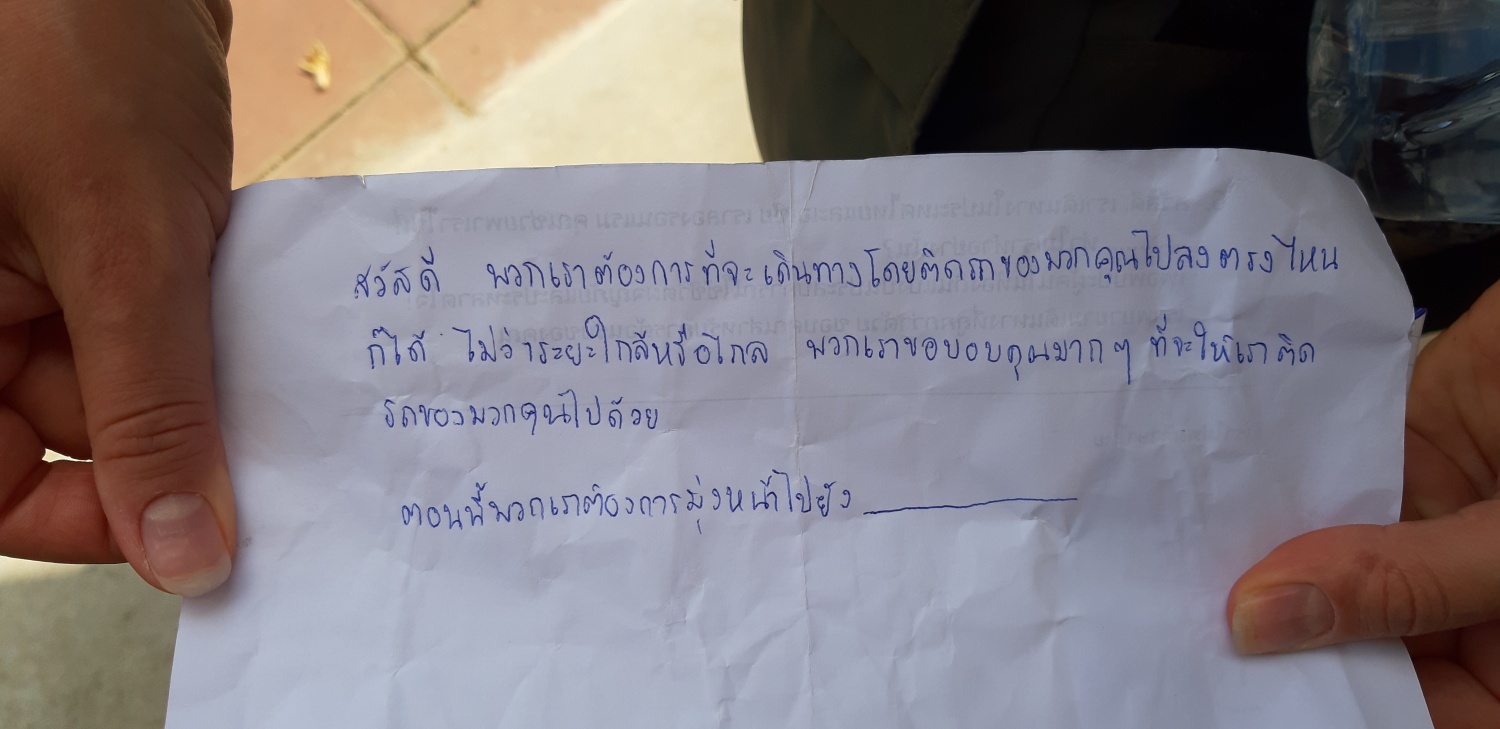 สวัสดี พวกเราต้องการที่จะเดินทางโดยติดรถของพวกคุณไปลงตรงไหน
ก็ได้ ไม่ว่าระยะใกล้หรือไกล พวกเราขอบอบคุณมากๆ ที่จะให้เราติด
รถของพวกคุณไปด้วย
ตอนนี้พวกเราต้องการมุ่งหน้าไปยัง